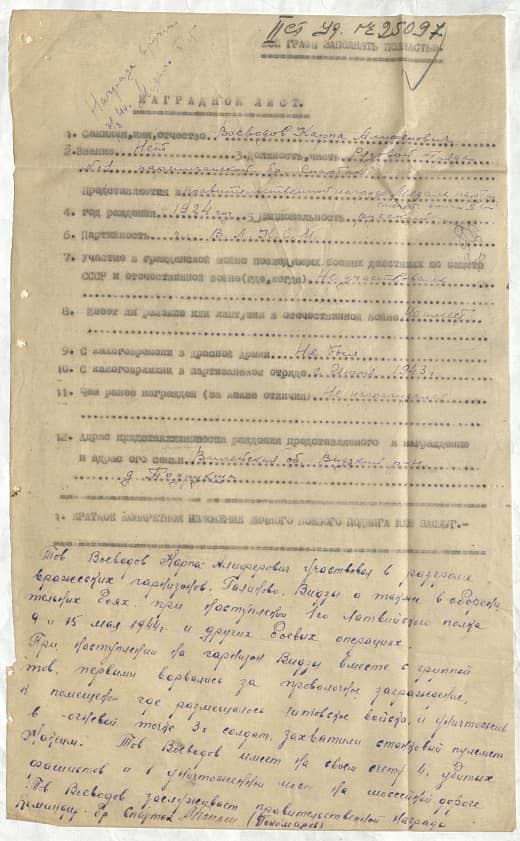 II ст Уд. № 25097
ВСЕ ГРАФЫ ЗАПОЛНЯТЬ ПОЛНОСТЬЮ.
НАГРАДНОЙ ЛИСТ.
1. Фамилия, имя, отчество Воеводов Карпа Алиферович
2. Звание Нет 3. Должность, часть Рядовой
бр Спартак
Представляется к правительственной награде Медали
4. год рождения 1924 5) Национальность русский
6. Партийность чл. В.Л.К.С.М.
7. Участие в гражданской войне последующих боевых действиях по защите
СССР и отечественной войне (где, когда) Не участвовал
8. Имеет ли ранение или контузии в отечественной войне Не имеет
9. С какого времени в Красной Армии Не был
10. С какого времени в партизанском отряде с 1943 г
11. Чем ранее награжден (за какие отличия) Не награждался
12. Адрес представляемого к награждению
и адрес его семьи Вилейская об. Видзкий р-н
д.
1. КРАТКОЕ КОНКРЕТНОЕ ИЗЛОЖЕНИЕ ЛИЧНОГО БОЕВОГО ПОДВИГА ИЛИ ЗАСЛУГ.-
Тов Воеводов Карпа Алиферович участвовал в разгроме
вражеских гарнизонов. Видзы а также в оборони
тельных боях при наступлении Латвийского полка
9 и 15 мая 1944 г и других боевых операциях.
При наступлении на гарнизон Видзы вместе с группой
тов. первыми ворвались за проволочное заграждение,
в помещение где размещалось литовское войско, и уничтожив
в огневой точке 3х солдат, захватили станковый пулемет
Тов Воеводов имеет на своем счету 4 убитых
фашистов и 1 уничтоженный мост на шоссейной дороге
Тов Воеводов заслуживает правительственной награды
Командир бр Спартак (Пономарев)